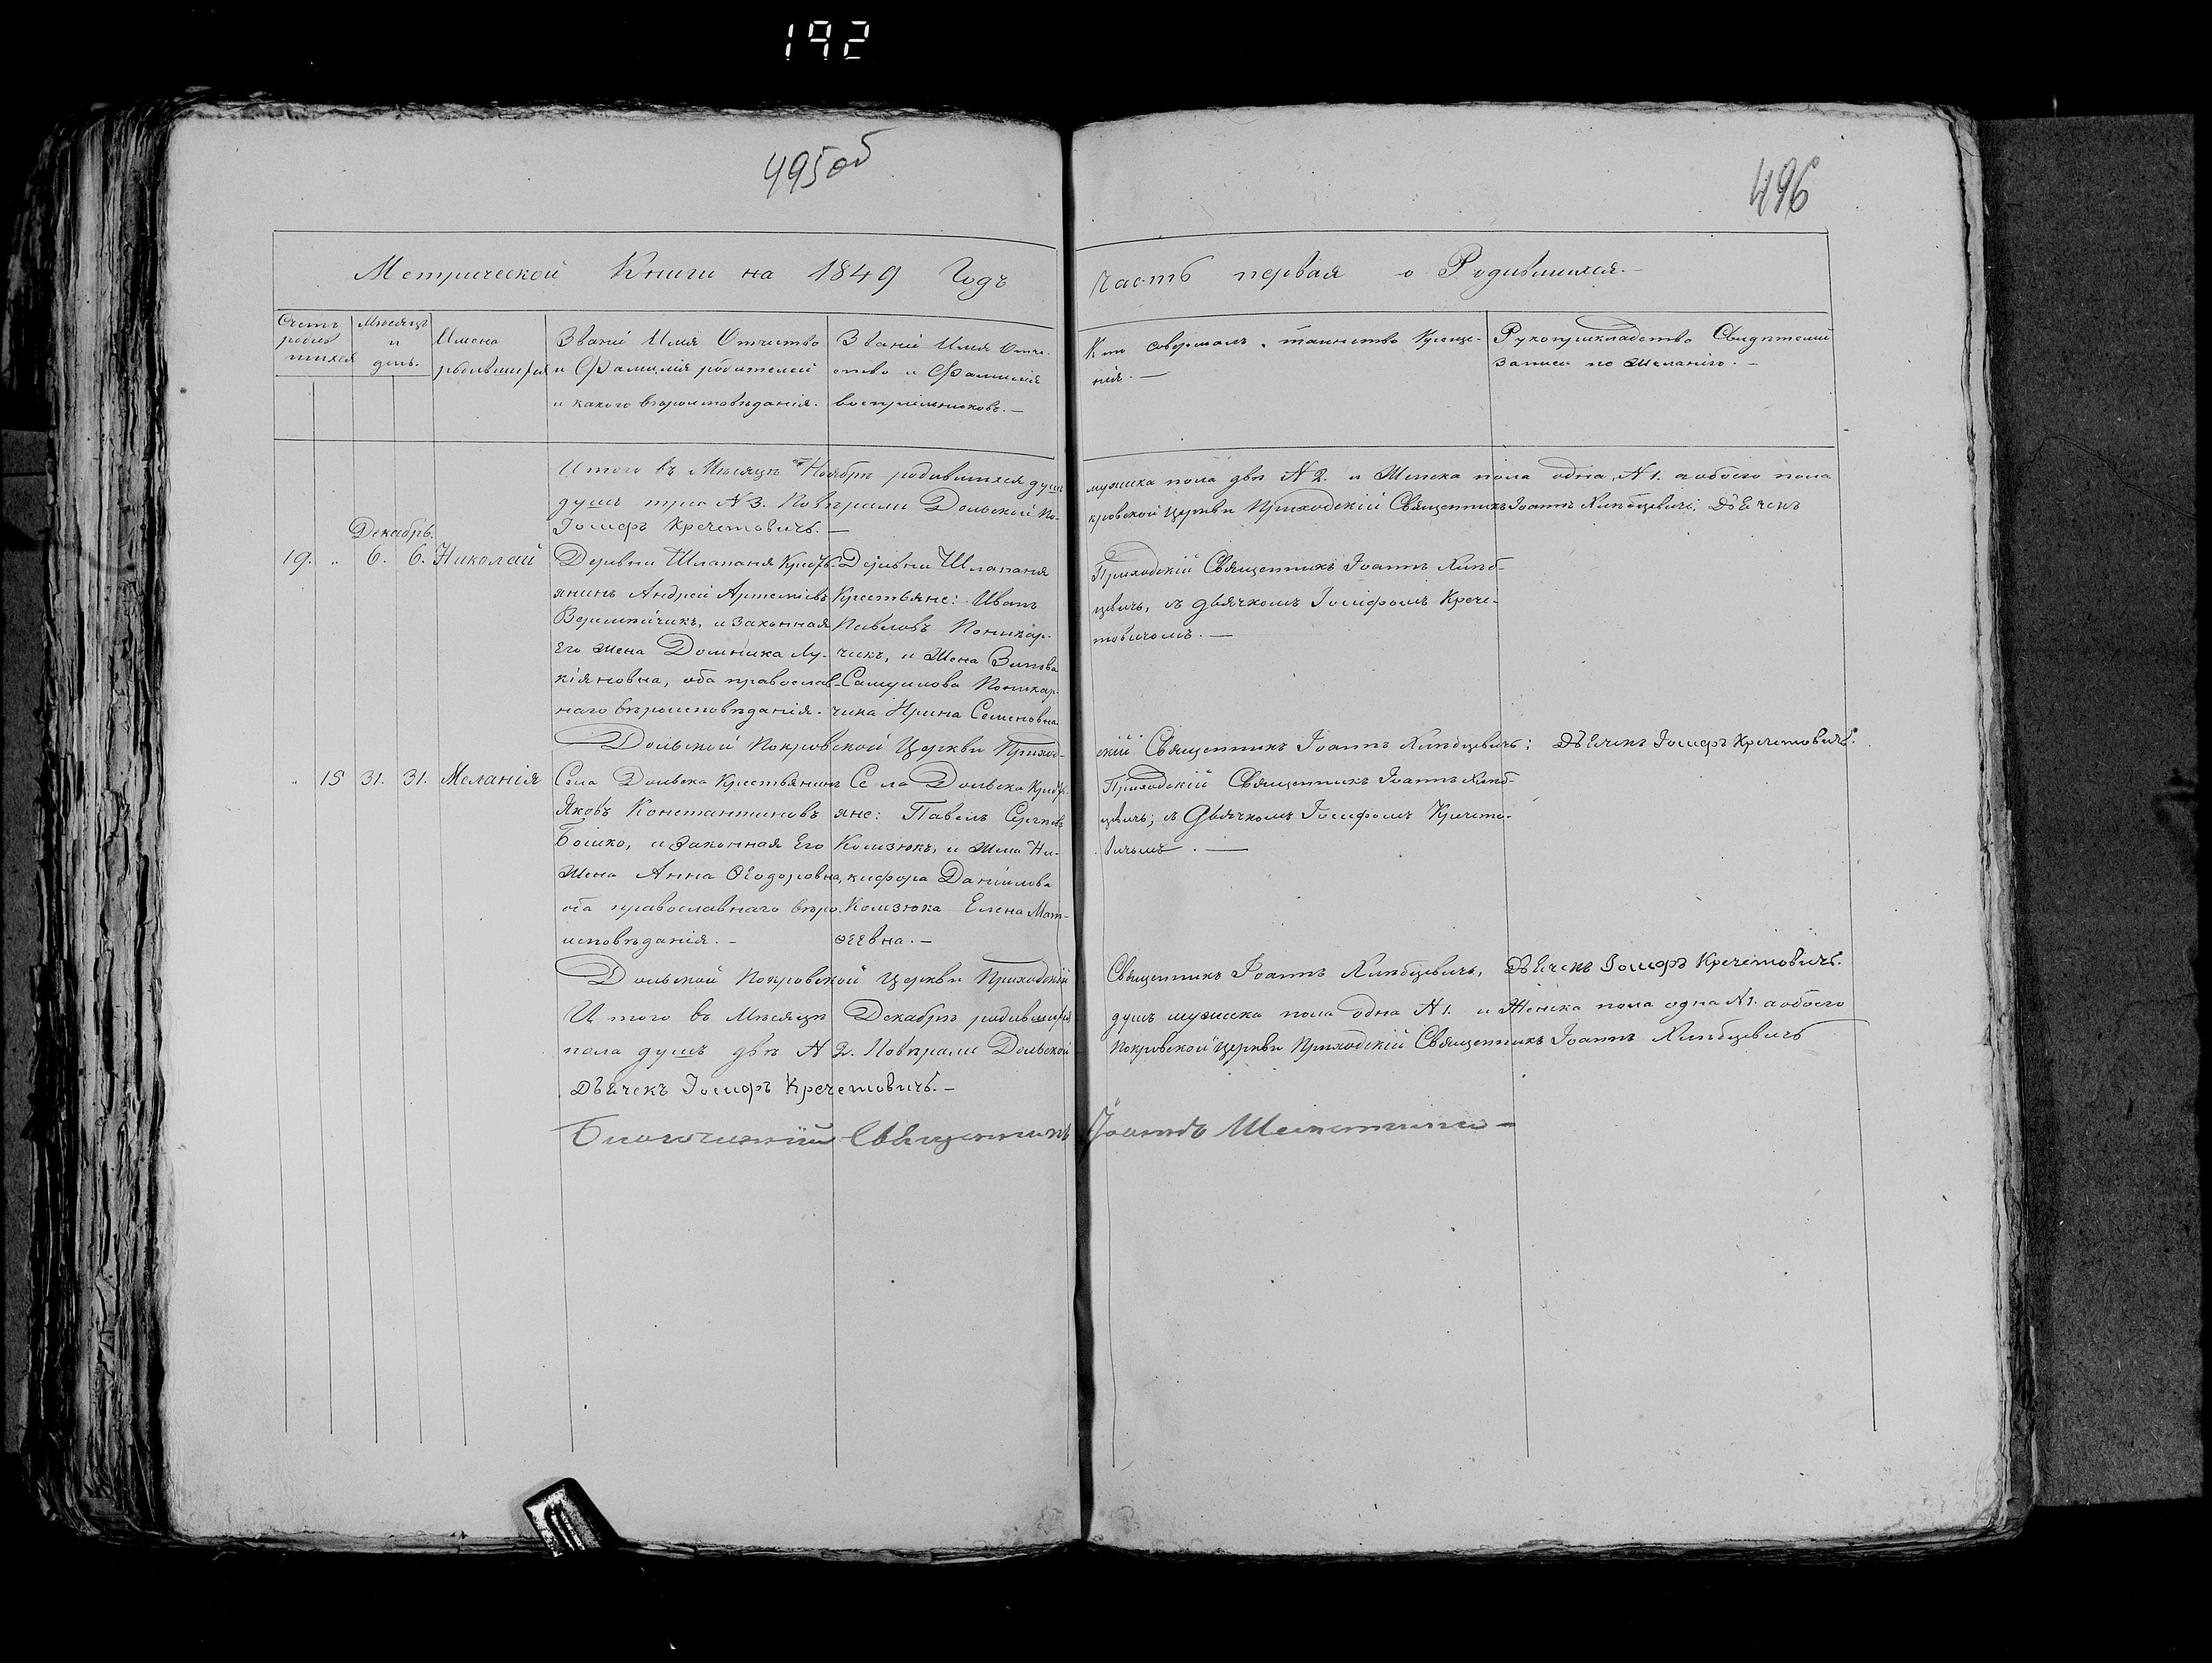 192
495об
496
Метрической Книги на 1849 Годъ
Часть первая о Родившихся.—
Счетъ родившихся
Мѣсяцъ и день.
Имена родившихся
Званіе Имя Отчество
и Фамилія родителей
и какого вѣроисповѣданія.
Званіе Имя Отче-
ство и Фамилія
воспріемниковъ.—
Кто совершалъ таинство Креще-
нія.—
Рукоприкладство Свидѣтелей
записи по желанію.—
Итого въ Мѣсяцѣ Ноябрѣ родившихся душъ
мужеска пола двѣ N 2. и Женска пола одна, N 1. а обоего пола
душъ три N 3. Повѣряли Дольской По-
кровской Церкви Приходскій Священникъ Іоаннъ Хлѣбцевичъ; Дьячекъ
Іосифъ Кречетовичъ.—
Декабрь.
19. „ 6. 6. Николай
Деревни Шлапаня Крест-
янинъ Андрей Артеміевъ
Веремейчикъ, и законная
Его жена Домника Лу-
кіяновна, оба православ-
наго вѣроисповѣданія.
Деревни Шлапаня
Крестьяне: Иванъ
Павловъ Поникар-
чикъ, и Жена
Самуилова Поникар-
чика Ирина Семеновна
Приходскій Священникъ Іоаннъ Хлѣб-
цевичъ, съ дьячкомъ Іосифомъ Крече-
товичомъ.—
Дольской Покровской Церкви Приход-
скій Священникъ Іоаннъ Хлѣбцевичъ; Дьячекъ Іосифъ Кречетовичъ.
„ 15 31. 31. Меланія
Села Дольска Крестьянинъ
Яковъ Константиновъ
Бошко, и законная Его
Жена Анна Ѳеодоровна,
оба православнаго вѣро-
исповѣданія.—
Села Дольска Крест-
яне: Павелъ Сергѣевъ
Комзюкъ, и Жена Ни-
кифора Даніилова
Комзюка Елена Мат-
ѳеевна.—
Приходскій Священникъ Іоаннъ Хлѣб-
цевичъ; съ Дьячкомъ Іосифомъ Кречето-
вичомъ.—
Дольской Покровской Церкви Приходскій
Священникъ Іоаннъ Хлѣбцевичъ, Дьячекъ Іосифъ Кречетовичъ.
Итого въ Мѣсяцѣ Декабрѣ родившихся
душъ мужеска пола одна N 1. и Женска пола одна N 1. а обоего
пола душъ двѣ N 2. Повѣряли Дольской
Покровской Церкви Приходскій Священникъ Іоаннъ Хлѣбцевичъ
Дьячекъ Іосифъ Кречетовичъ.—
Благочинный Священникъ Іоаннъ